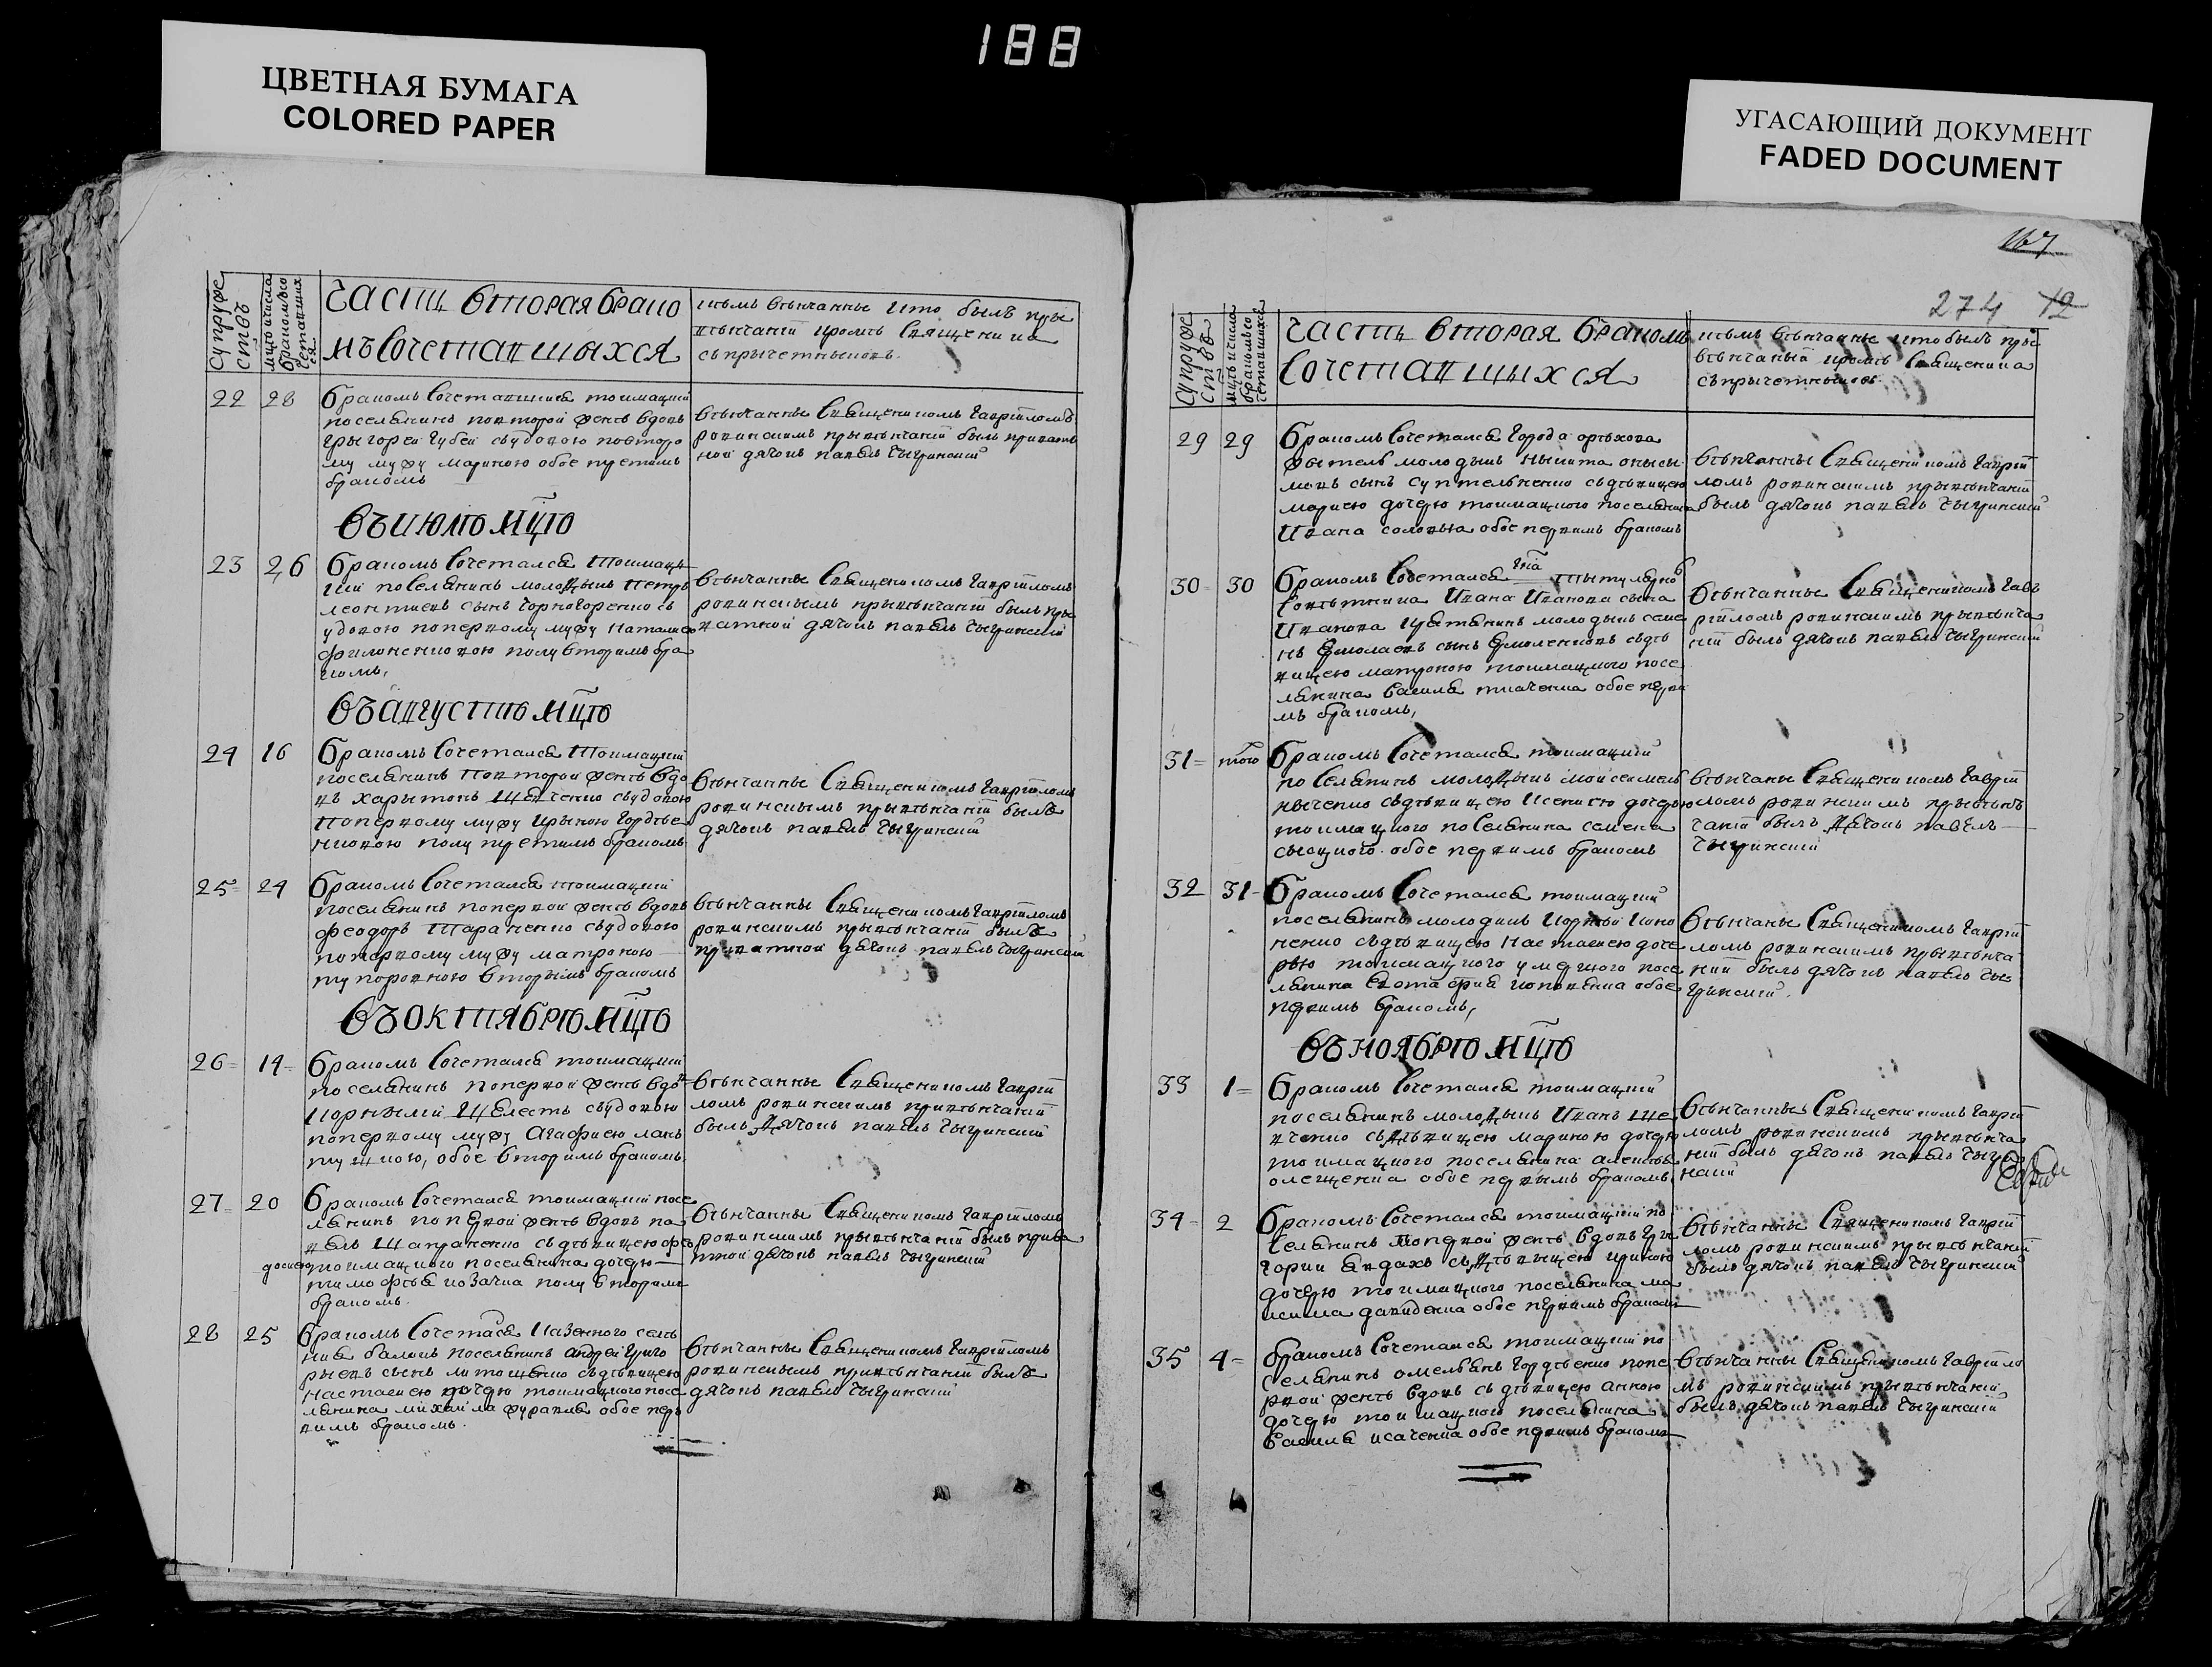 188
ЦВЕТНАЯ БУМАГА
COLORED PAPER
УГАСАЮЩИЙ ДОКУМЕНТ
FADED DOCUMENT
Супруже
ствъ
мцъ и числа
бракомъ со
четавших
ся
часть вторая брако
мъ сочетавшыхся
кѣмъ вѣнчанны и кто былъ при
вѣнчаніи кромѣ священика
съ причетныковъ
22 28 бракомъ сочетавшися токмацкій
поселянинъ по второй женѣ вдовъ
григорей губей съ удовою по второ
му мужу мариною обое третимъ
бракомъ
вѣнчанны священикомъ гавріиломъ
ровинскимъ при вѣнчаніи былъ приват
ной дячокъ павелъ чыгринскій
въ июлѣ мцѣ
23 26 бракомъ сочетался токмац
кій поселянинъ молодыкъ петръ
леонтиевъ сынъ чорногоренко съ
удовою по первому мужу наталиею
филоненковою полувторимъ бра
комъ,
вѣнчанны священикомъ гавріиломъ
ровинскымъ при вѣнчаніи былъ при
ватной дячокъ павелъ чыгринскій
въ августѣ мцѣ
24 16 бракомъ сочетался токмацкій
поселянинъ по второй женѣ вдо
въ харытонъ шевченко съ удовою
по первому мужу ирыною гордѣе
нковою полу третимъ бракомъ
вѣнчанны священикомъ гавріиломъ
ровинскымъ при вѣнчаніи былъ
дячокъ павелъ чыгринскій
25 24 бракомъ сочетался токмацкій
поселянинъ по первой женѣ вдовъ
феодоръ тараненко съ удовою
по первому мужу матроною
вторымъ бракомъ
вѣнчанны священикомъ гавріиломъ
ровинскимъ при вѣнчаніи былъ
приватной дячокъ павелъ чыгринскій
въ октябрѣ мцѣ
26 14 бракомъ сочетался токмацкій
поселянинъ по первой женѣ вдовъ
корнылій шелестъ съ удовою
по первому мужу агафиею лапъ
обое вторимъ бракомъ
вѣнчанны священикомъ гавріи
ломъ ровинскимъ при вѣнчаніи
былъ дячокъ павелъ чыгринскій
27 20 бракомъ сочетался токмацкій посе
лянинъ по первой женѣ вдовъ па
велъ шапраненко съ дѣвицею фео
досиею токмацкого поселянина дочерю
тимофѣя козачка полу вторимъ
бракомъ.
вѣнчанны священикомъ гавріиломъ
ровинскимъ при вѣнчаніи былъ прива
тной дячокъ павелъ чыгринскій
28 25 бракомъ сочетался казенного селе
ния балокъ поселянинъ андрей григо
рыевъ сынъ съ дѣвицею
настасиею дочерю токмацкого посе
лянина михайла журавля обое пер
вимъ бракомъ.
вѣнчанны священикомъ гавріиломъ
ровинскымъ при вѣнчаніи былъ
дячокъ павелъ чыгринскій
167
274 12
Супруже
ствъ
мцъ и числа
бракомъ со
четавшихся
часть вторая бракомъ
сочетавшыхся
кѣмъ вѣнчанны и кто былъ при
вѣнчаніи кромѣ священика
съ причетныковъ
29 29 бракомъ сочетался города орѣхова
жытель молодыкъ никита
сынъ суптельненко съ дѣвицею
мариею дочерю токмацкого поселянина
ивана соловья обое первимъ бракомъ
вѣнчанны священикомъ гавріи
ломъ ровинскимъ при вѣнчаніи
былъ дячокъ павелъ чыгринскій
30 30 бракомъ сочетался гна тытулярно
совѣтника ивана иванова сына
иванова молодыкъ семе
нъ ермолаевъ сынъ ермоленковъ съ дѣ
вицею матроною токмацкого посе
лянина василя ткаченка обое перви
мъ бракомъ,
вѣнчанны священикомъ гав
ріиломъ ровинскимъ при вѣнча
ніи былъ дячокъ павелъ чыгринскій
31 того бракомъ сочетался токмацкій
поселянинъ молодыкъ мойсей
съ дѣвицею ксениею дочерью
токмацкого поселянина семена
обое первимъ бракомъ
вѣнчаны священикомъ гавріи
ломъ ровинскимъ при вѣнъ
чаніи былъ дячокъ павелъ
чыгринскій
32 31 бракомъ сочетался токмацкій
поселянинъ молодикъ
съ дѣвицею настасиею доче
рью токмацкого умершого посе
лянина обое
первимъ бракомъ,
вѣнчаны священикомъ гавріи
ломъ ровинскимъ при вѣнча
ніи былъ дячокъ павелъ чы
гринскій.
въ ноябрѣ мцѣ
33 1 бракомъ сочетался токмацкій
поселянинъ молодыкъ иванъ ше
вченко съ дѣвицею мариною дочерю
токмацкого поселянина алексѣя
олещенка обое первымъ бракомъ
вѣнчанны священикомъ гаврі
ломъ ровинскимъ при вѣнча
ніи былъ дячокъ павелъ чыгри
нскій
34 2 бракомъ сочетался токмацкій по
селянинъ по первой женѣ вдовъ гри
горий съ дѣвыцею ириною
дочерю токмацкого поселянина ма
ксима давиденка обое первимъ бракомъ
вѣнчанны священикомъ гавріи
ломъ ровинскимъ при вѣнчаніи
былъ дячокъ павелъ чыгринскій
35 4 бракомъ сочетался токмацкій по
селянинъ омелянъ гордѣенко по пе
рвой женѣ вдовъ съ дѣвицею анною
дочерю токмацкого поселянина
василя исаченка обое первимъ бракомъ
вѣнчанны священикомъ гавріило
мъ ровинскимъ при вѣнчаніи
былъ дячокъ павелъ чыгринскій